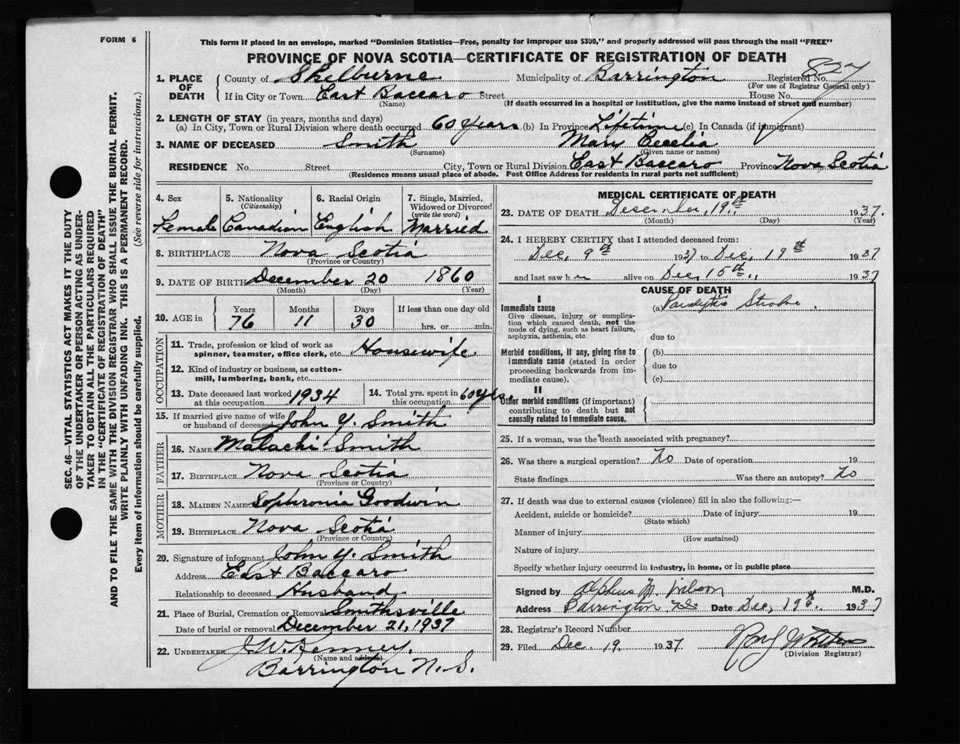 FORM 6
This form if placed in an envelope, marked "Dominion Statistics—Free, penalty for improper use $300," and properly addressed will pass through the mail "FREE"
PROVINCE OF NOVA SCOTIA—CERTIFICATE OF REGISTRATION OF DEATH
1. PLACE OF DEATH County of Shelburne Municipality of Barrington Registered No.
(For use of Registrar General only)
If in City or Town East Baccaro Street House No.
(Name) (If death occurred in a hospital or institution, give the name instead of street and number)
2. LENGTH OF STAY (in years, months and days)
(a) In City, Town or Rural Division where death occurred 60 years (b) In Province Lifetime (c) In Canada (if immigrant)
3. NAME OF DECEASED Smith Mary Cecelia
(Surname) (Given name or names)
RESIDENCE No. Street City, Town or Rural Division East Baccaro Province Nova Scotia
(Residence means usual place of abode. Post Office Address for residents in rural parts not sufficient)
4. Sex 5. Nationality (Citizenship) 6. Racial Origin 7. Single, Married, Widowed or Divorced (write the word)
Female Canadian English Married
8. BIRTHPLACE Nova Scotia
(Province or Country)
9. DATE OF BIRTH December 20 1860
(Month) (Day) (Year)
10. AGE in Years Months Days If less than one day old
76 11 30 hrs. or min.
OCCUPATION
11. Trade, profession or kind of work as spinner, teamster, office clerk, etc. Housewife
12. Kind of industry or business, as cotton-mill, lumbering, bank, etc.
13. Date deceased last worked at this occupation 1934 14. Total yrs. spent in this occupation 60 yrs
15. If married give name of wife or husband of deceased John Y. Smith
FATHER
16. NAME Malachi Smith
17. BIRTHPLACE Nova Scotia
(Province or Country)
MOTHER
18. MAIDEN NAME Sophronia Goodwin
19. BIRTHPLACE Nova Scotia
(Province or Country)
20. Signature of informant John Y. Smith
Address East Baccaro
Relationship to deceased Husband
21. Place of Burial, Cremation or Removal Smithsville
Date of burial or removal December 21, 1937
22. UNDERTAKER J. W. Kenney
(Name and address)
Barrington N.S.
MEDICAL CERTIFICATE OF DEATH
23. DATE OF DEATH December, 19th 1937.
(Month) (Day) (Year)
24. I HEREBY CERTIFY that I attended deceased from
Dec, 9th 1937 to Dec, 19th 1937
and last saw her alive on Dec, 15th 1937
CAUSE OF DEATH
I
Immediate cause
Give disease, injury or complication which caused death, not the mode of dying, such as heart failure, asphyxia, asthenia, etc
(a) Stroke
due to
Morbid conditions, if any, giving rise to immediate cause (stated in order proceeding backwards from immediate cause).
(b)
due to
(c)
II
Other morbid conditions (if important) contributing to death but not causally related to immediate cause.
25. If a woman, was the death associated with pregnancy?
26. Was there a surgical operation? No Date of operation 19
State findings Was there an autopsy? No
27. If death was due to external causes (violence) fill in also the following:—
Accident, suicide or homicide? Date of injury 19
(State which)
Manner of injury
(How sustained)
Nature of injury
Specify whether injury occurred in industry, in home, or in public place
Signed by Alpheus M. Wilson M.D.
Address Barrington NS Date Dec, 19th. 1937
28. Registrar's Record Number
29. Filed Dec. 19. 1937.
(Division Registrar)
SEC. 46—VITAL STATISTICS ACT MAKES IT THE DUTY
OF THE UNDERTAKER OR PERSON ACTING AS UNDER-
TAKER TO OBTAIN ALL THE PARTICULARS REQUIRED
IN THE "CERTIFICATE OF REGISTRATION OF DEATH"
AND TO FILE THE SAME WITH THE DIVISION REGISTRAR WHO SHALL ISSUE THE BURIAL PERMIT.
WRITE PLAINLY WITH UNFADING INK. THIS IS A PERMANENT RECORD.
Every item of information should be carefully supplied. (See reverse side for instructions.)